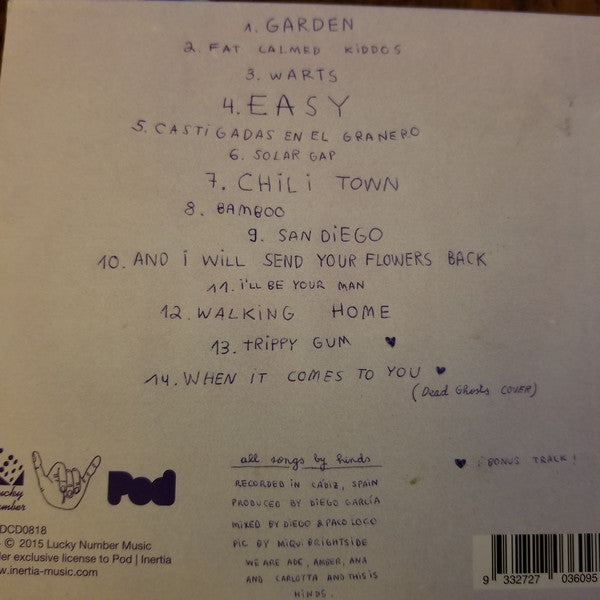 1. GARDEN
2. FAT CALMED KIDDOS
3. WARTS
4. EASY
5. CASTIGADAS EN EL GRANERO
6. SOLAR GAP
7. CHILI TOWN
8. BAMBOO
9. SAN DIEGO
10. AND I WILL SEND YOUR FLOWERS BACK
11. I'LL BE YOUR MAN
12. WALKING HOME
13. TRIPPY GUM ♥
14. WHEN IT COMES TO YOU ♥
(Dead Ghosts COVER)
all songs by hinds
RECORDED IN CÁDIZ, SPAIN
PRODUCED BY DIEGO GARCÍA
MIXED BY DIEGO & PACO LOCO
PIC BY MIQUI BRIGHTSIDE
WE ARE ADE, AMBER, ANA
AND CARLOTTA AND THIS IS
HINDS.
♥ ¡BONUS TRACK!
Pod
DCD0818
© 2015 Lucky Number Music
exclusive license to Pod | Inertia
.inertia-music.com
9 332727 036095